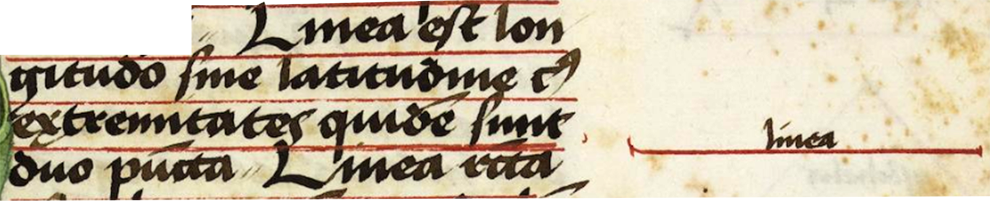 Linea est lon
gitudo sine latitudine cꝰ
extremitates quidē sunt
duo pūcta Linea rc̄ta
linea